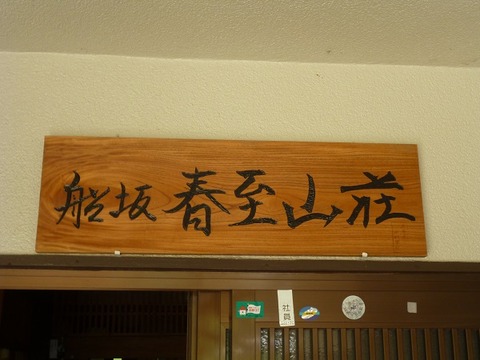 船坂 春至山荘
社員